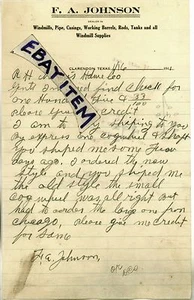 F. A. JOHNSON
DEALER IN
Windmills, Pipe, Casings, Working Barrels, Rods, Tanks and all
Windmill Supplies
CLARENDON TEXAS,
EBAY ITEM
find check for
One Hundred five & 33/100
please give credit
I am to day shiping to you
By express one cogwheel & shaft
You shiped me some few
Days ago. I ordered the new
style and you shiped me
the old style the small
cogwheel was all right But
had to order the Big on from
Chicago, please give me credit
for same
F. A. Johnson,